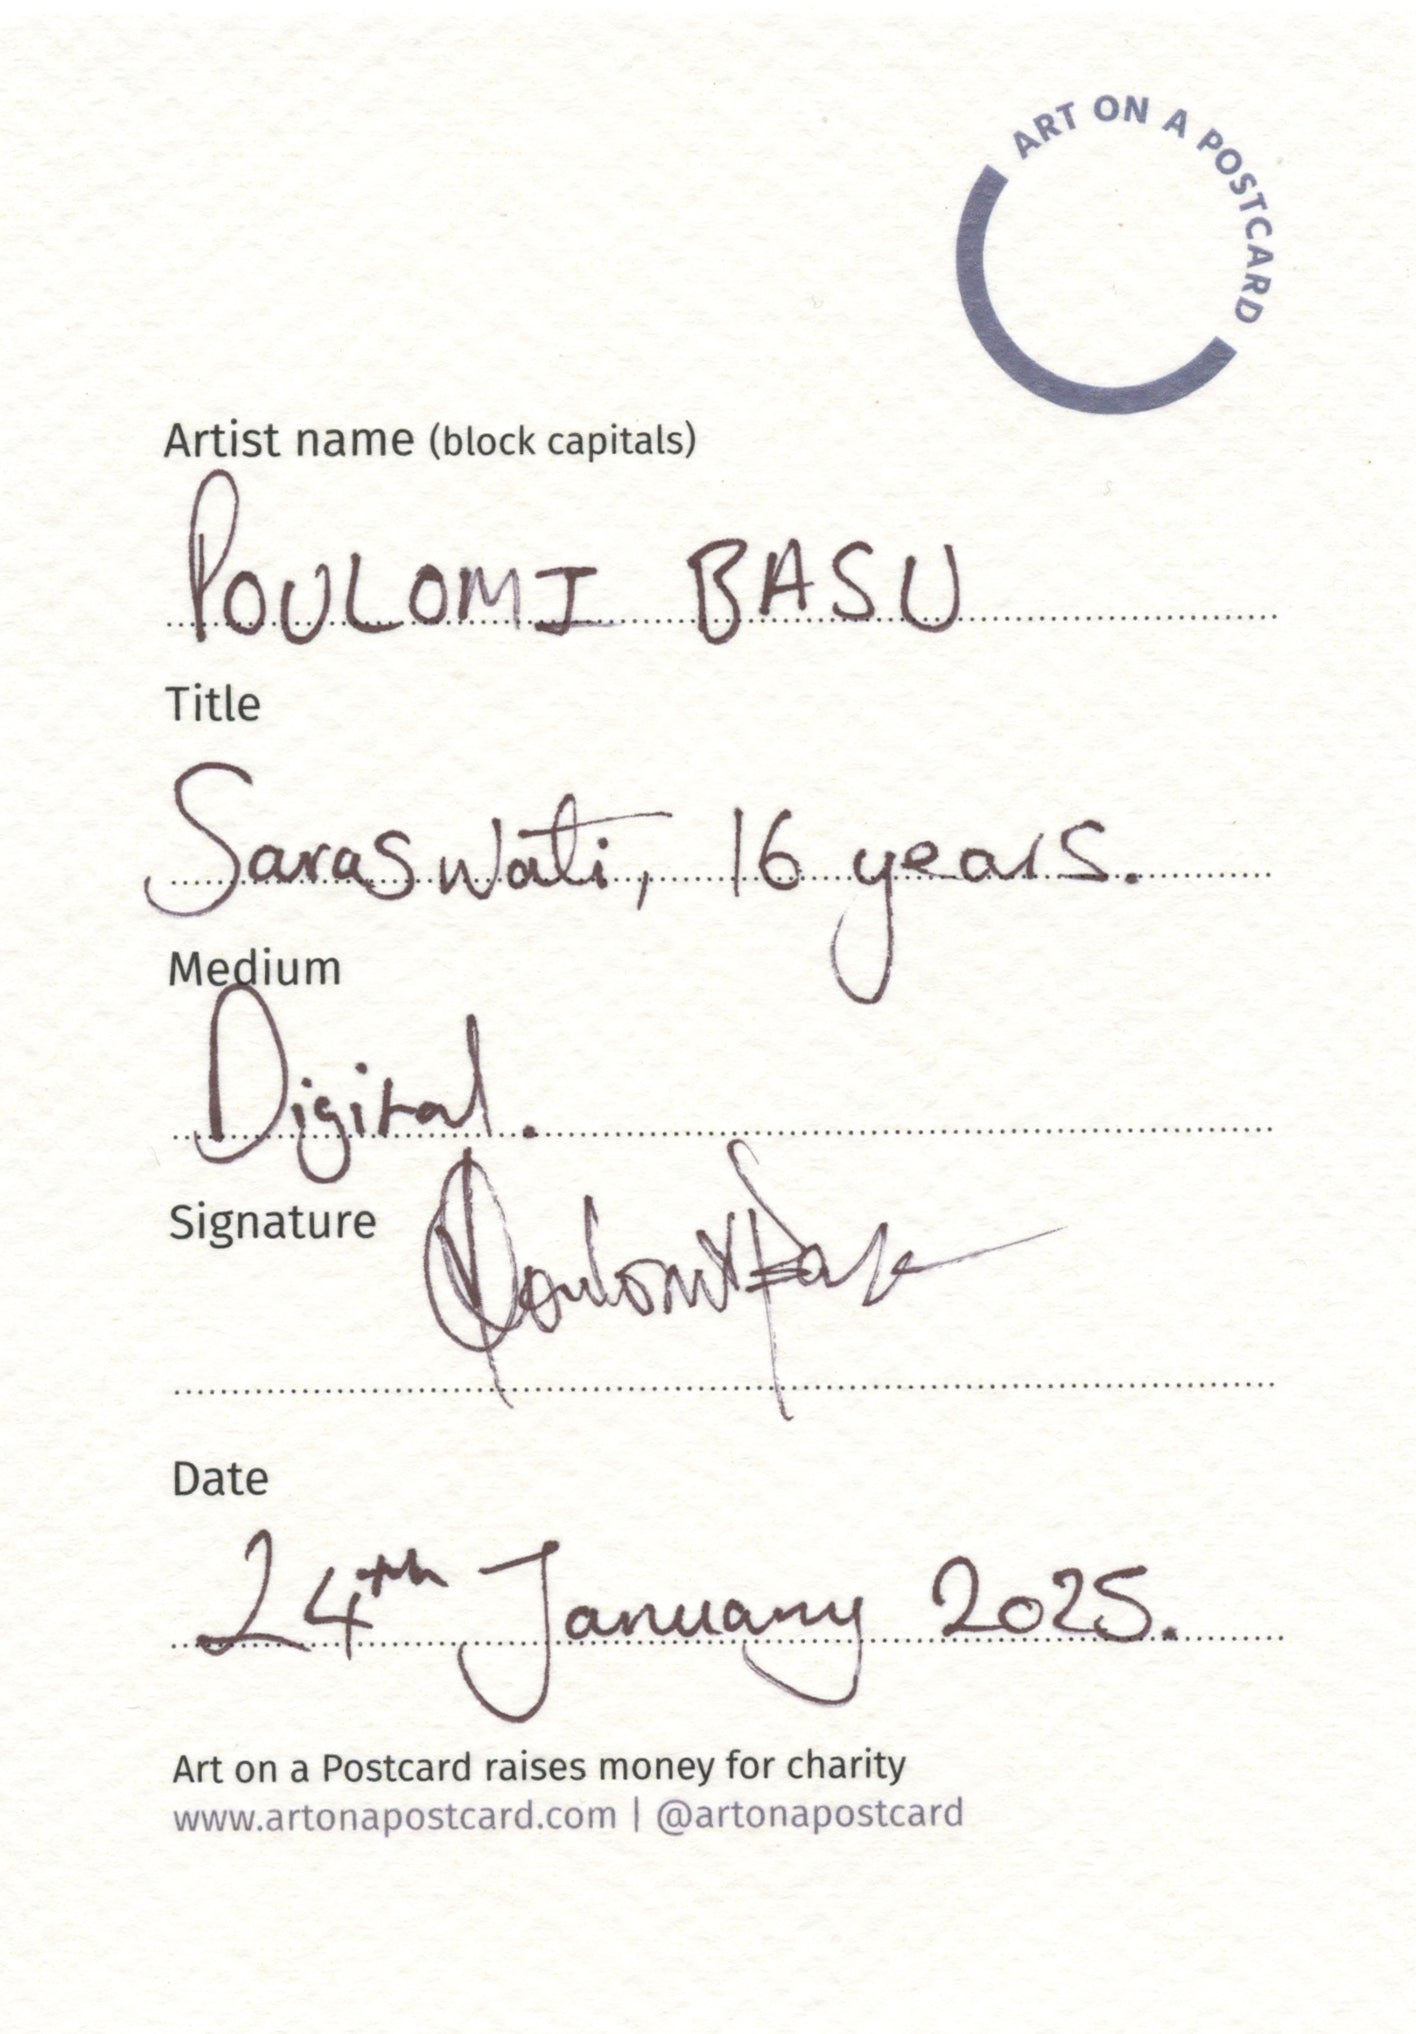 ART ON A POSTCARD
Artist name (block capitals)
POULOMI BASU
Title
Saraswati, 16 years.
Medium
Digital.
Signature
Poulomi Basu
Date
24th January 2025.
Art on a Postcard raises money for charity
www.artonapostcard.com | @artonapostcard